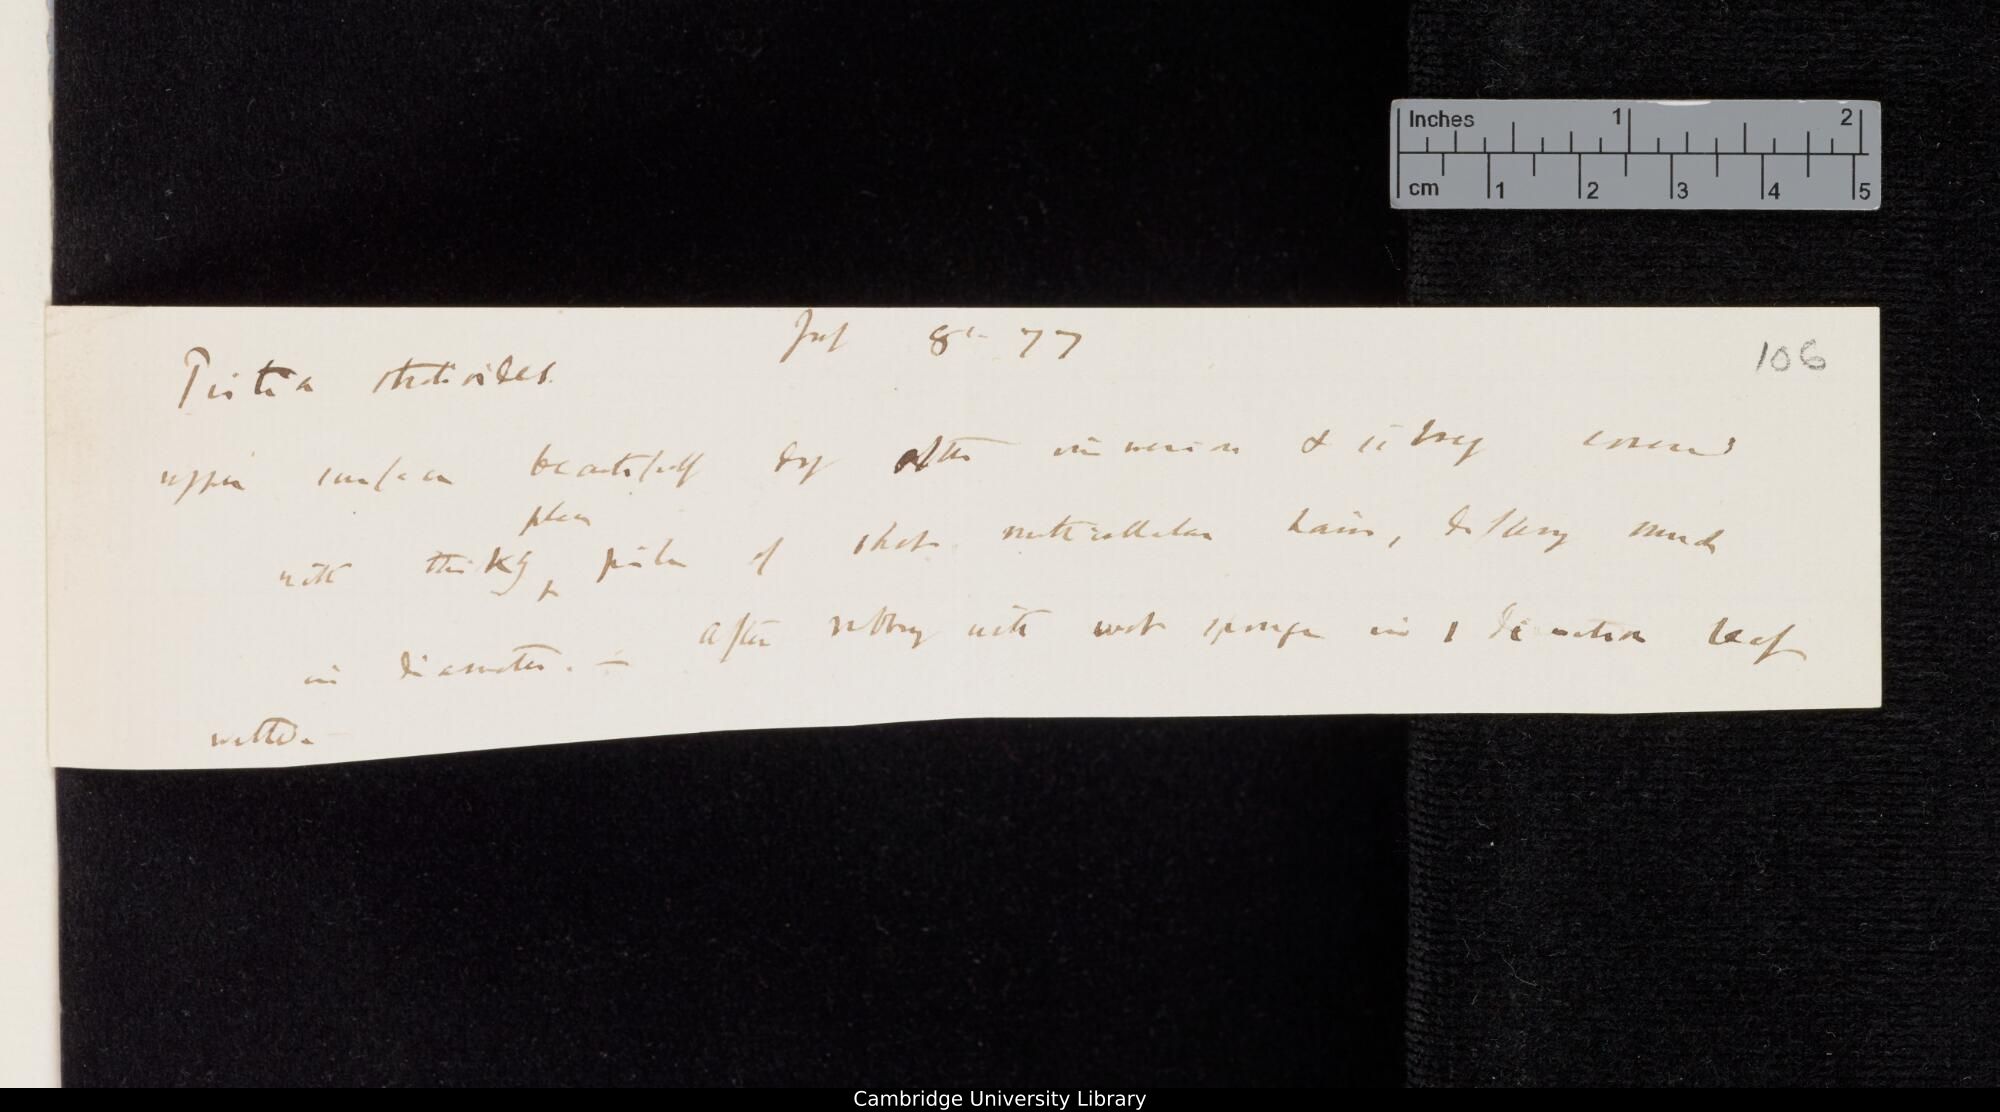 July 8th 77
106
Pistia stratioides.
upper surface beautifully dry after immersion & silvery covered
with thickly placed
hairs of short multicellular hairs, differing much
in diameter. — After rubbing with wet sponge in 1 direction leaf
wetted. —
Inches 1 2
cm 1 2 3 4 5
Cambridge University Library